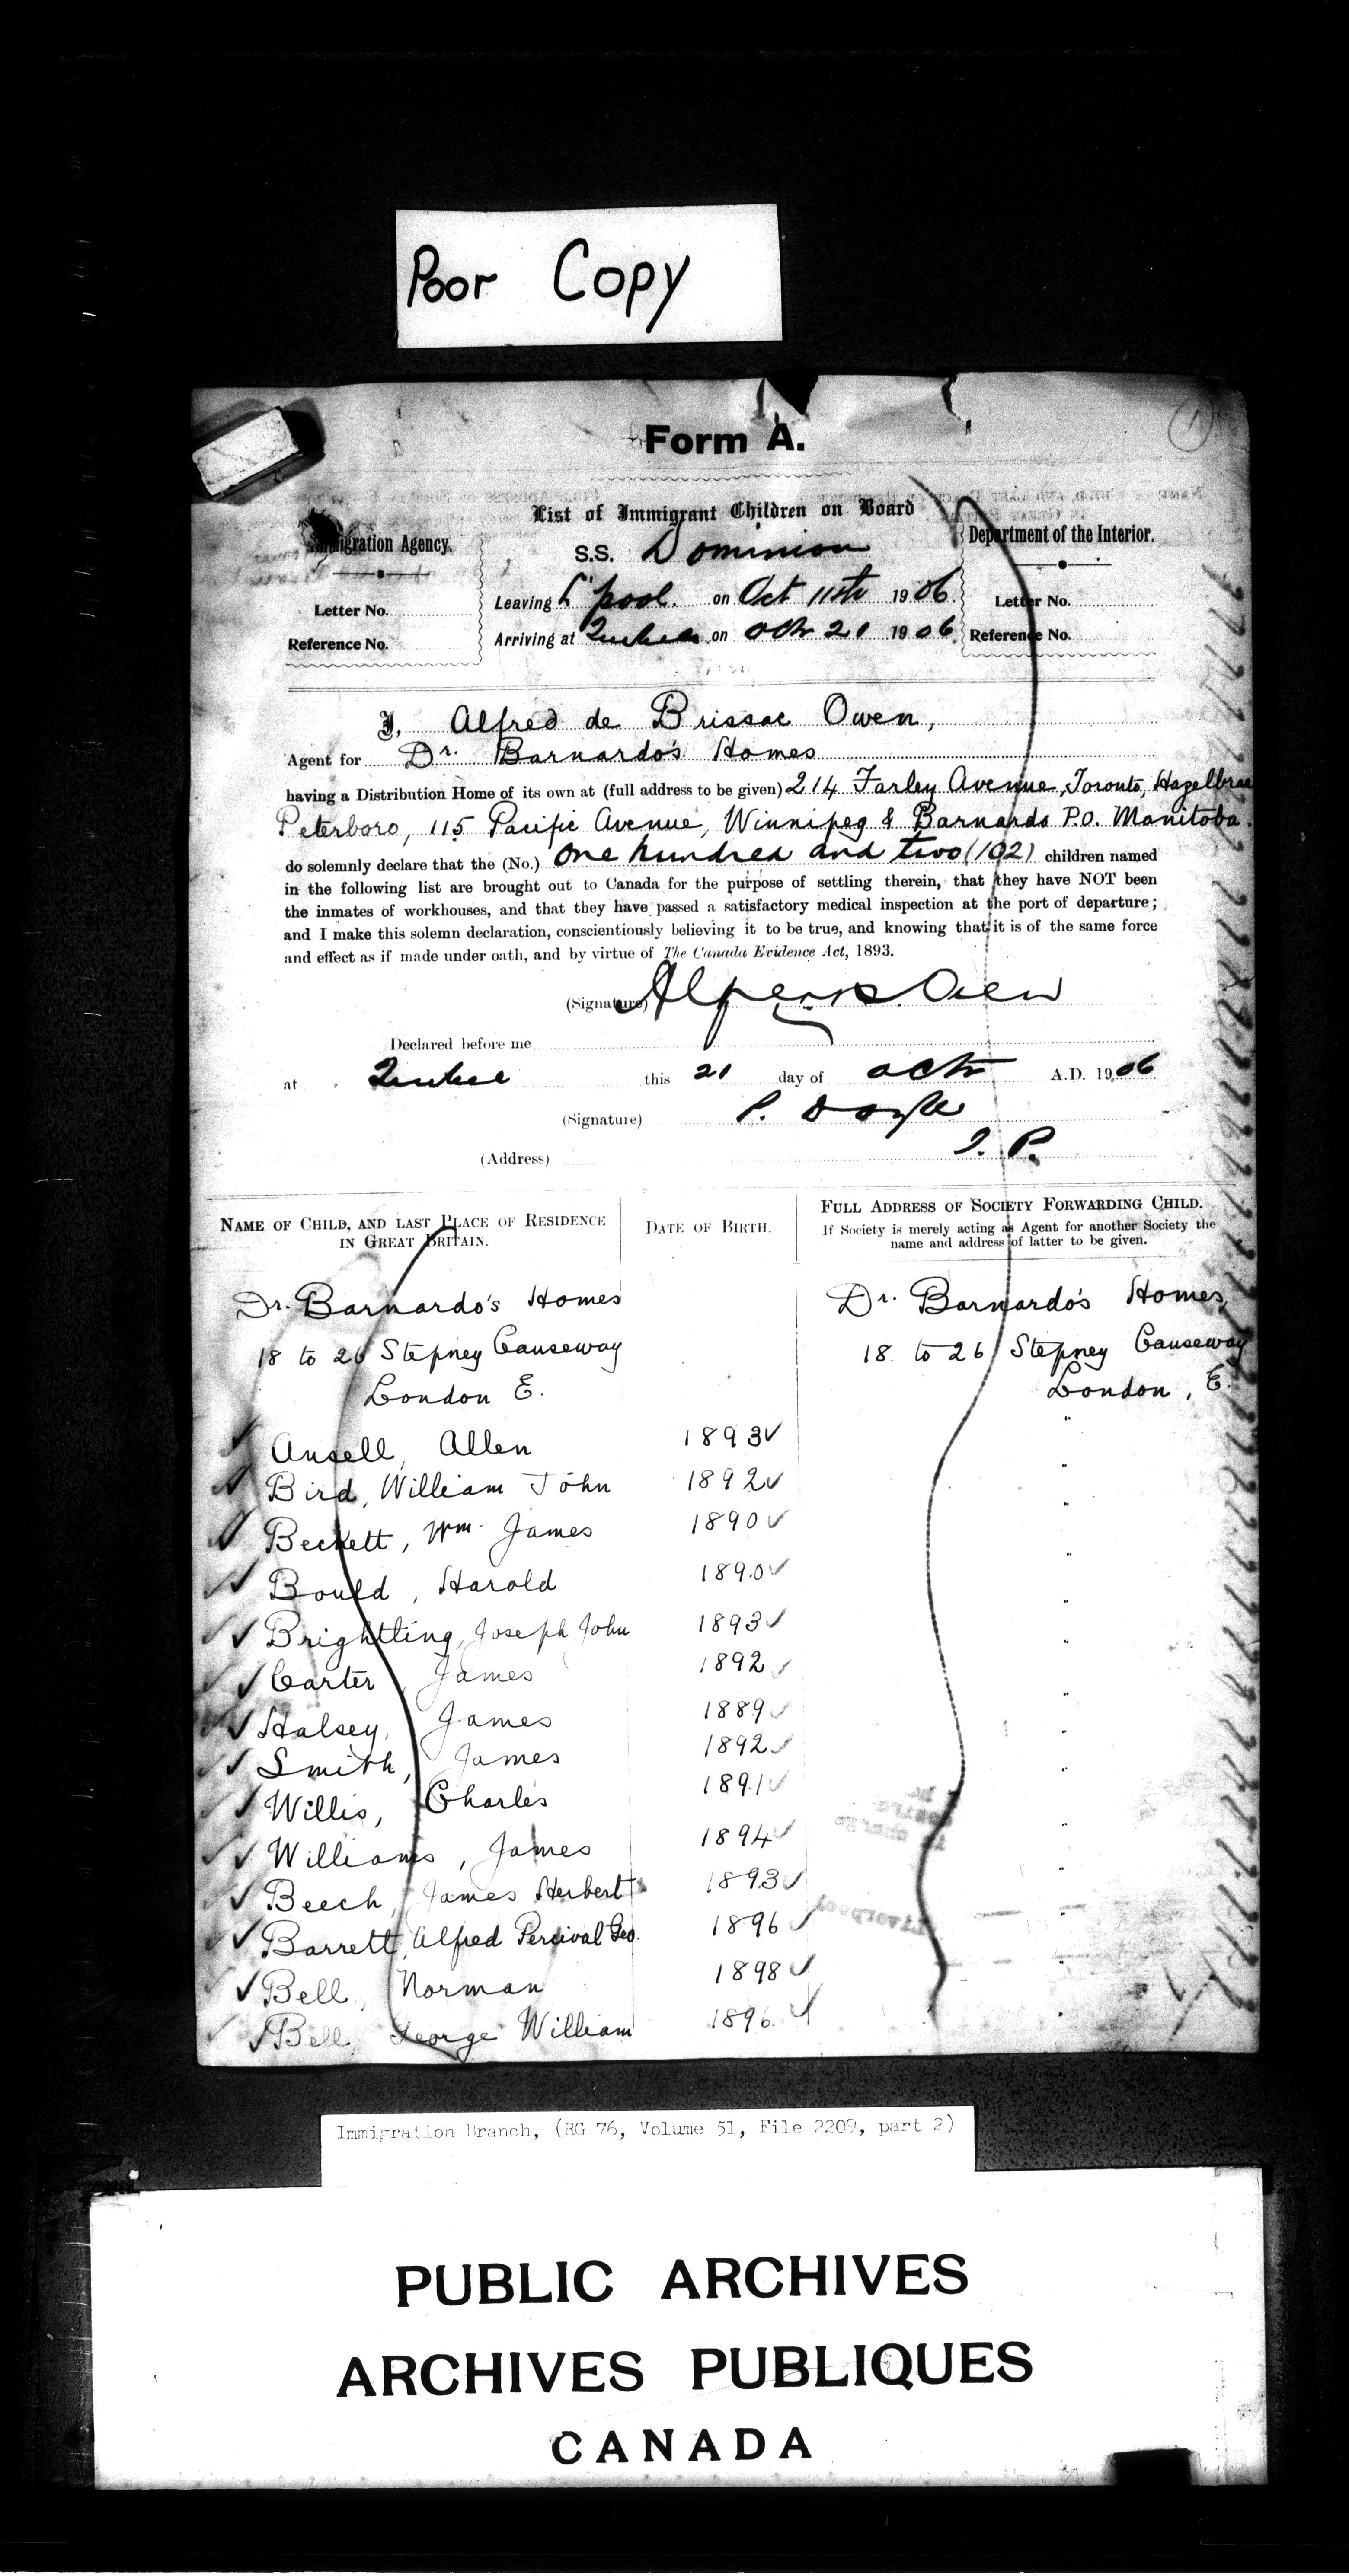 Poor Copy
Form A.
List of Immigrant Children on Board
Immigration Agency.
Letter No.
Reference No.
S.S. Dominion
Leaving L'pool. on Oct 11th 1906
Arriving at Quebec on Oct 21 1906
Department of the Interior.
Letter No.
Reference No.
I, Alfred de Brissac Owen,
Agent for Dr. Barnardo's Homes
having a Distribution Home of its own at (full address to be given) 214 Farley Avenue, Toronto, Hazelbrae
Peterboro, 115 Pacific Avenue, Winnipeg & Barnardo P.O. Manitoba.
do solemnly declare that the (No.) one hundred and two (102) children named
in the following list are brought out to Canada for the purpose of settling therein, that they have NOT been
the inmates of workhouses, and that they have passed a satisfactory medical inspection at the port of departure;
and I make this solemn declaration, conscientiously believing it to be true, and knowing that it is of the same force
and effect as if made under oath, and by virtue of The Canada Evidence Act, 1893.
(Signature) Owen
Declared before me
at Quebec this 21 day of Oct A.D. 1906
(Signature) P. Doyle
J. P.
(Address)
NAME OF CHILD, AND LAST PLACE OF RESIDENCE
IN GREAT BRITAIN.
DATE OF BIRTH.
FULL ADDRESS OF SOCIETY FORWARDING CHILD.
If Society is merely acting as Agent for another Society the
name and address of latter to be given.
Dr. Barnardo's Homes Dr. Barnardo's Homes,
18 to 26 Stepney Causeway 18 to 26 Stepney Causeway
London E. London, E.
Ansell, Allen 1893 "
Bird, William John 1892 "
Beckett, Wm. James 1890 "
Bould, Harold 1890 "
Brightling, Joseph John 1893 "
Carter, James 1892 "
Halsey, James 1889 "
Smith, James 1892 "
Willis, Charles 1891 "
Williams, James 1894 "
Beech, James Herbert 1893 "
Barrett, Alfred Percival Geo. 1896 "
Bell, Norman 1898 "
Bell, George William 1896 "
Immigration Branch, (RG 76, Volume 51, File 2209, part 2)
PUBLIC ARCHIVES
ARCHIVES PUBLIQUES
CANADA